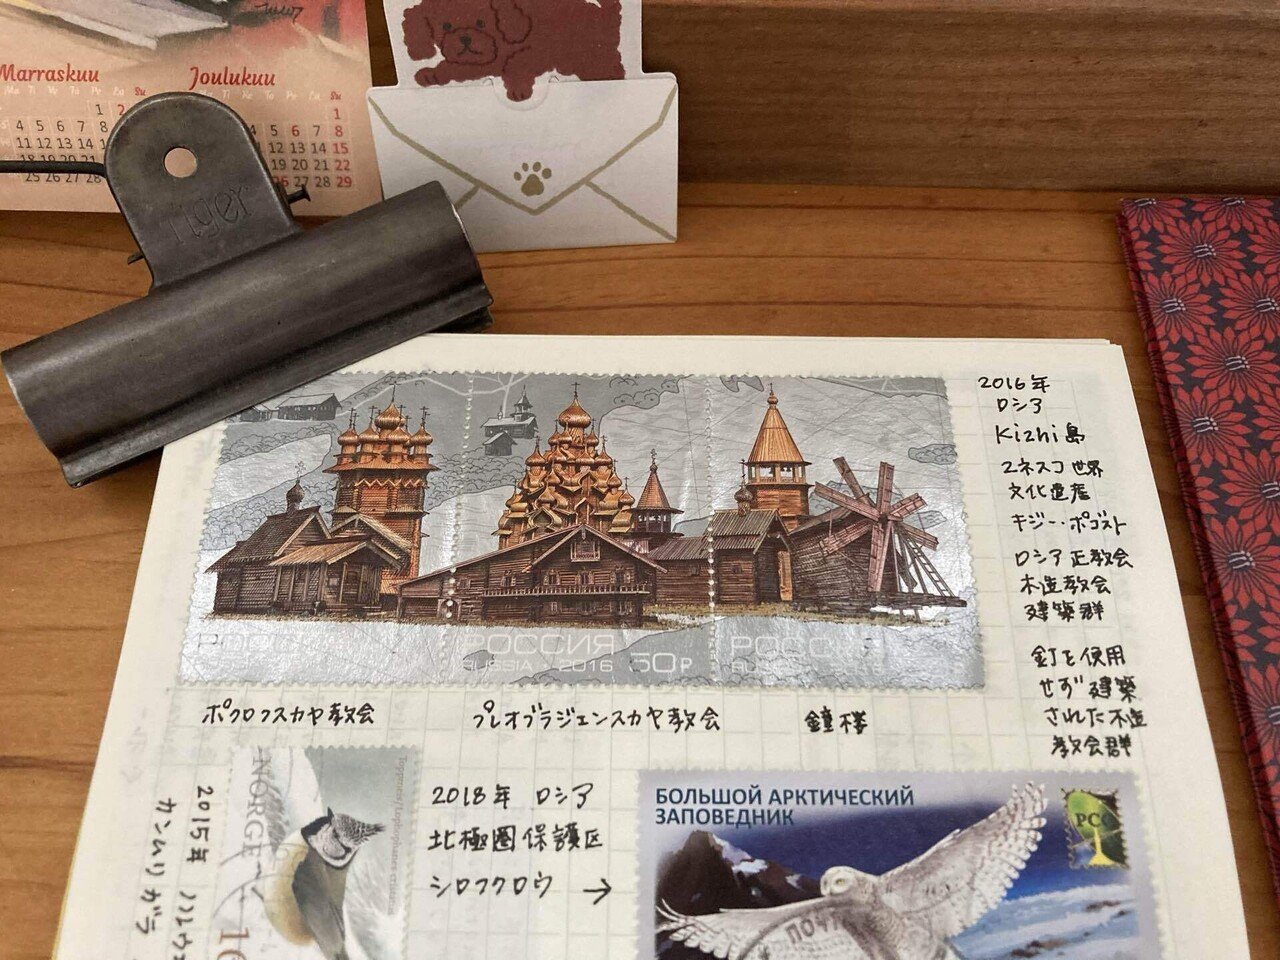 Marraskuu
Joulukuu
Su
1 2
1
4 5 6 7 8
11 12 13 14
18 19 20 21
25 26 27 28
4 5 6 7 8
11 12 13 14 15
18 19 20 21 22
26 27 28 29
Tiger
2016年
ロシア
Kizhi島
ユネスコ世界
文化遺産
キジー・ポゴスト
ロシア正教会
木造教会
建築群
釘を使用
せず建築
された木造
教会群
РОССИЯ
RUSSIA • 2016 50р
РОССИ
ポクロフスカヤ教会
プレオブラジェンスカヤ教会
鐘楼
NORGE
Toppmeis/Lophophanes cristatus
2015年 ノルウェ
カンムリガラ
2018年 ロシア
北極圏保護区
シロフクロウ →
БОЛЬШОЙ АРКТИЧЕСКИЙ
ЗАПОВЕДНИК
РСС
ПОЧТ